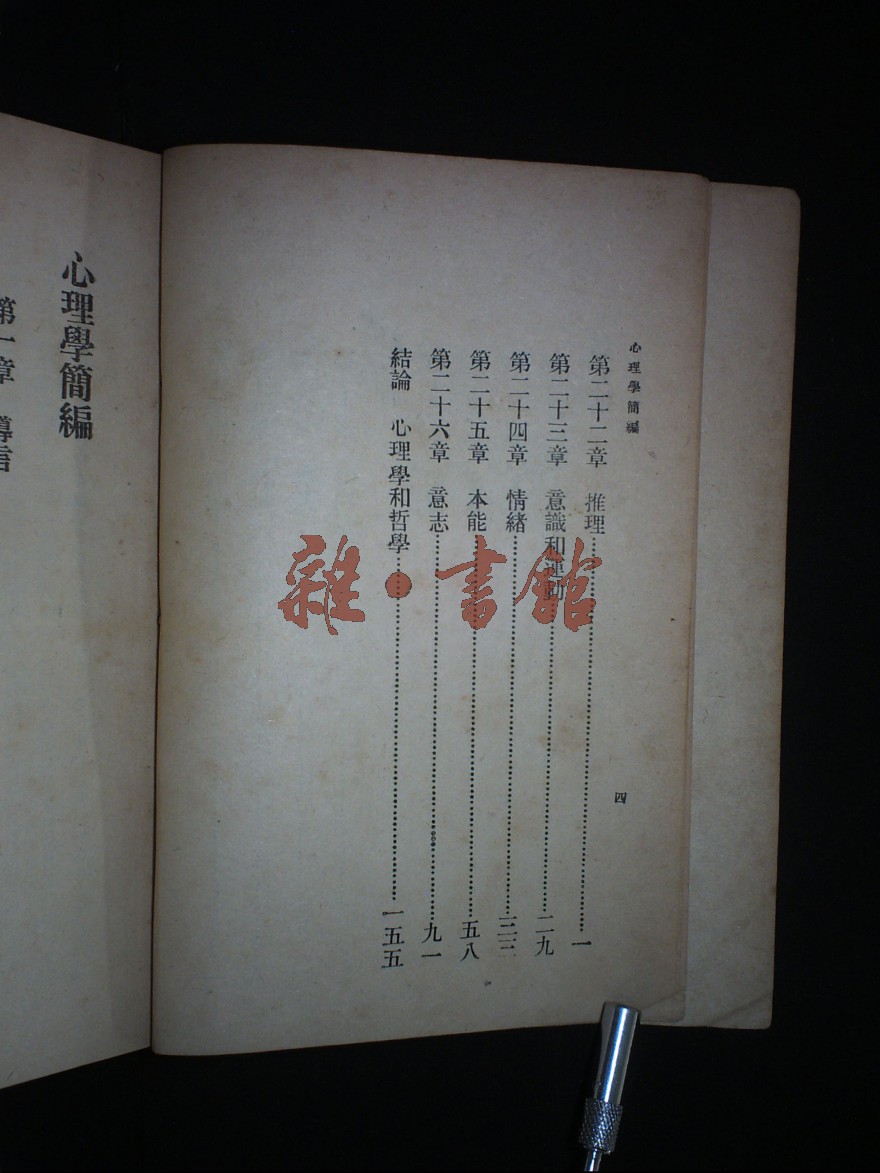 心理學簡編
四
第二十二章　推理……一
第二十三章　意識和運動……二九
第二十四章　情緒……三三
第二十五章　本能……五八
第二十六章　意志……九一
結論　心理學和哲學……一五五
心理學簡編
第一章　導言
雜·書館